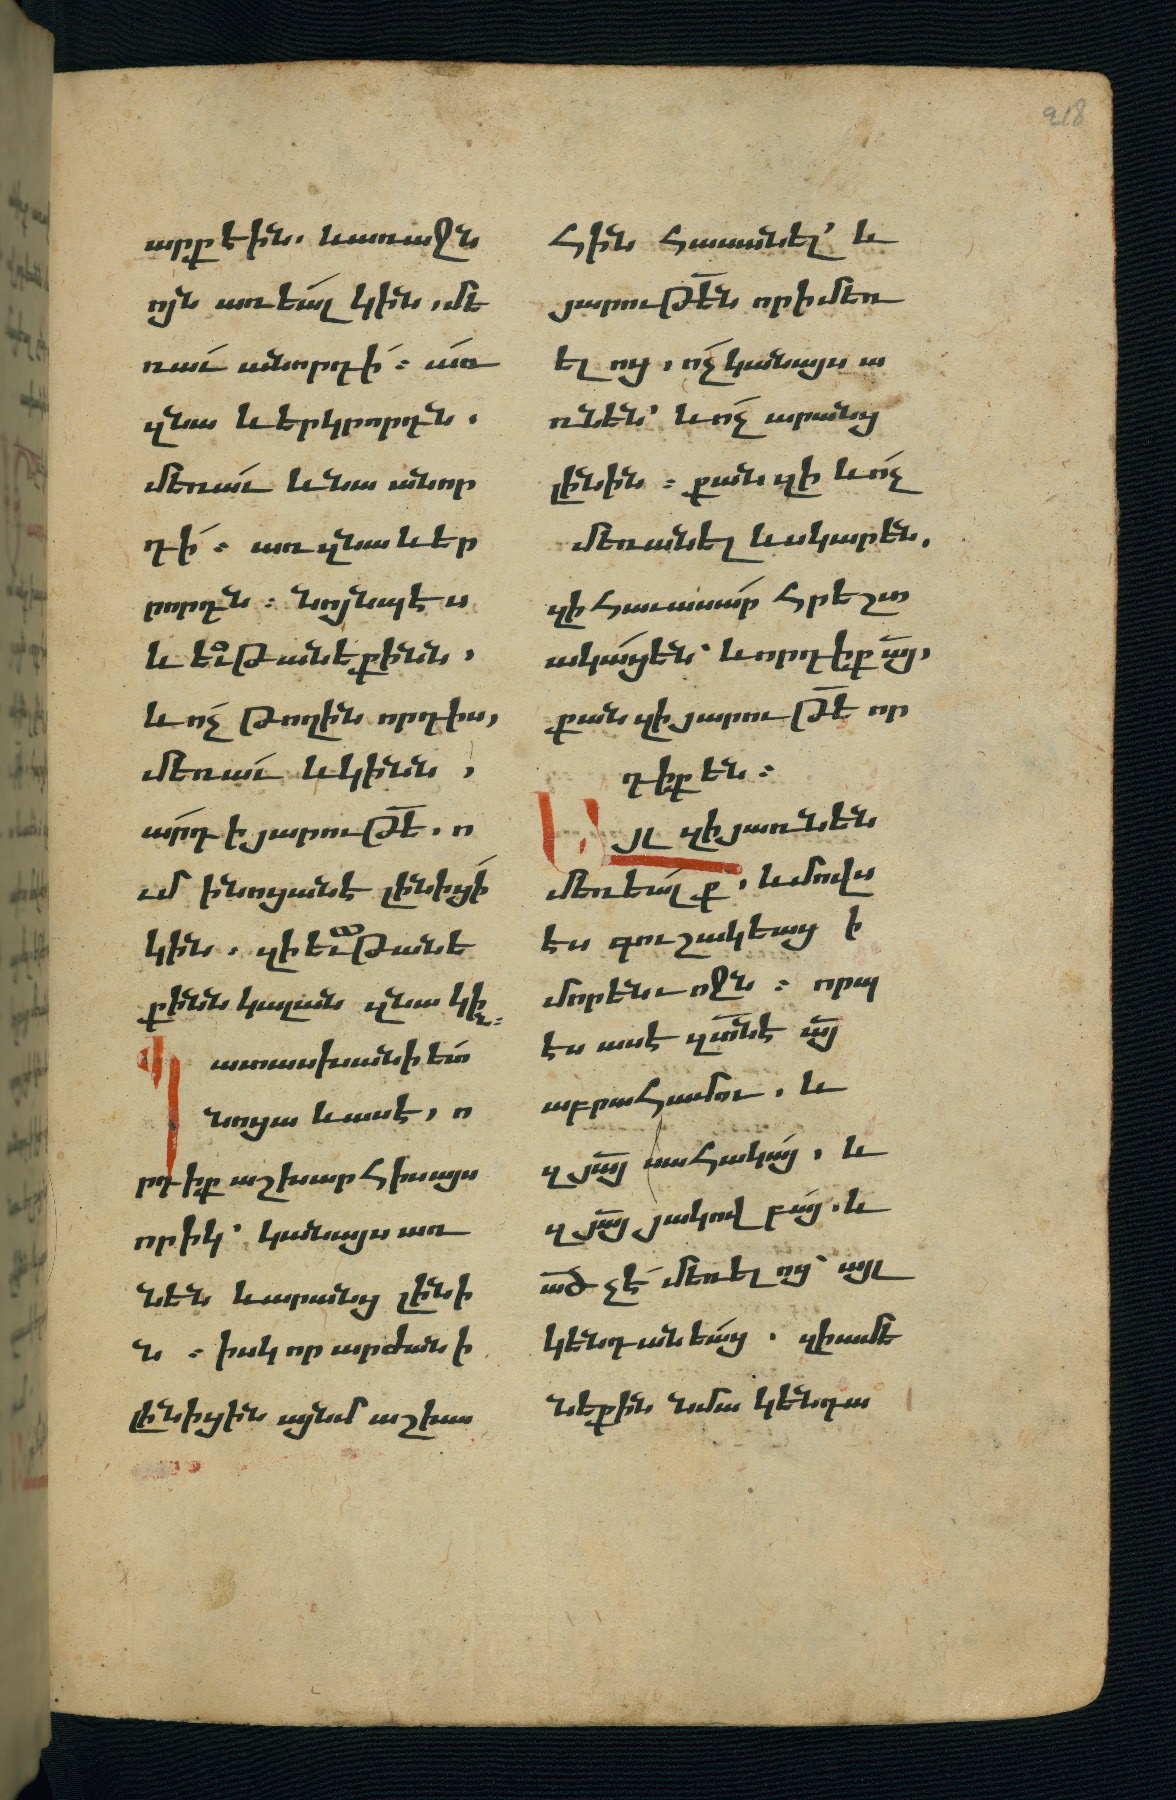 218
արք էին. և առաջն
ոյն առեալ կին, մե
ռաւ անորդի ։ առ
զնա և երկրորդն.
մեռաւ և նա անոր
դի ։ առ զնա և եր
րորդն ։ նոյնպէս
և եւթանեքինն,
և ոչ թողին որդիս,
մեռաւ և կինն,
արդ ի յարութե̄. ո
ւմ ի նոցանէ լինիցի
կին. զի եւթանե
քինն կալան զնա կի̄ն։
Պատասխանի ետ
նոցա և ասէ, ո
րդիք աշխարհիս այս
որիկ՝ կանայս առ
նեն և արանց լինի
ն ։ իսկ որ արժանի
լինիցին այնմ աշխա
րհին հասանել՝ և
յարութե̄ն որ ի մեռ
ելոց, ոչ կանայս ա
ռնեն՝ և ոչ արանց
լինին ։ քանզի և ոչ
մեռանել ևս կարեն.
զի հաւասար հրեշտ
ակաց են՝ և որդիք ա̄յ,
քանզի յարութե̄ որ
դիք են ։
Այլ զի յառնեն
մեռեալք, և մովս
ես գուշակեաց ի
մորենւոջն ։ որպ
ես ասէ զտ̄նէ ա̄յ
աբրահամու, և
զյա̄յ սահակայ, և
զյա̄յ յակովբայ. և
ա̄ծ չէ մեռելոց՝ այլ
կենդանեաց. զի ամե
նեքին նմա կենդա